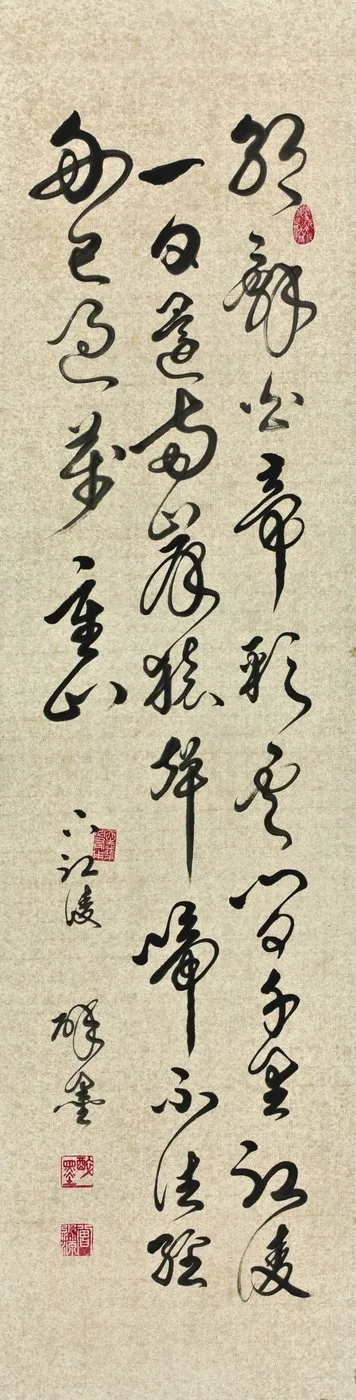 朝辭白帝彩雲間千里江陵
一日還兩岸猿聲啼不住輕
舟已過萬重山
下江陵 醉墨